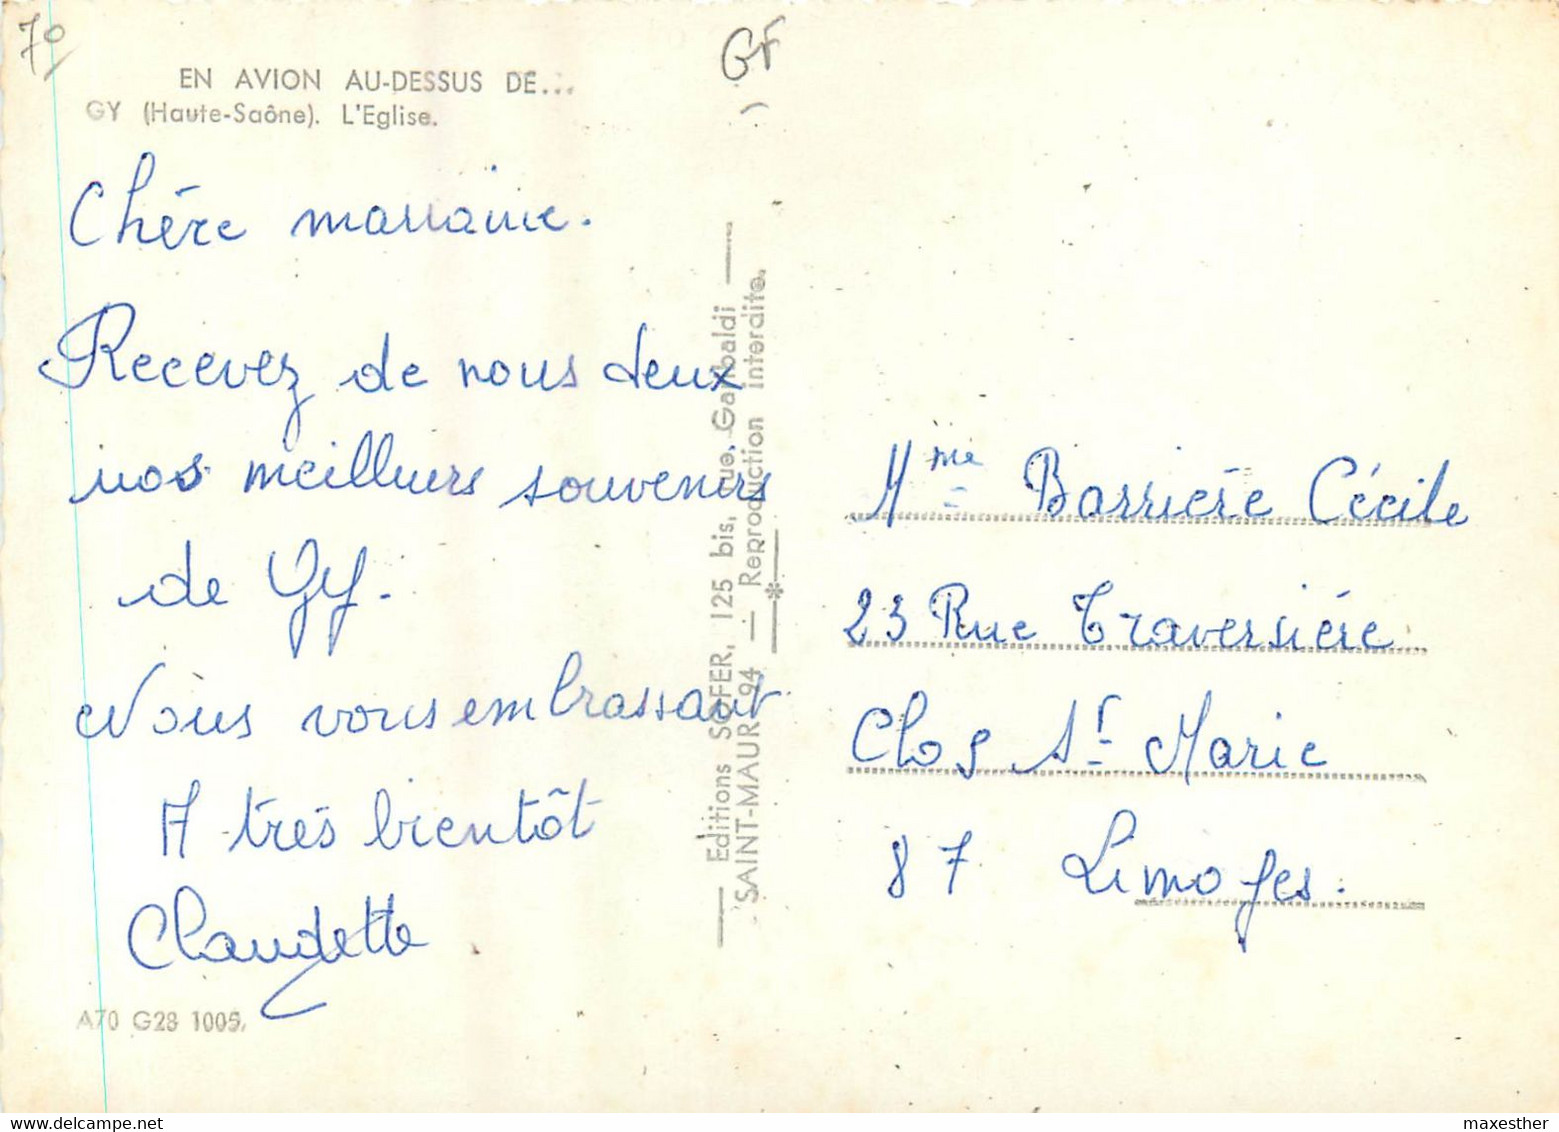 70
GF
EN AVION AU-DESSUS DE...
GY (Haute-Saône). L'Eglise.
Chère marraine.
Recevez de nous deux
nos meilleurs souvenirs
de Gy.
Nous vous embrassant
A très bientôt
Claudette
A70 G28 1005.
Editions SOFER, 125 bis, rue Garibaldi
SAINT-MAUR 94 — Reproduction Interdite.
Mme Barrière Cécile
23 Rue Traversière
Clos St Marie
87 Limoges.
delcampe.net
maxesther